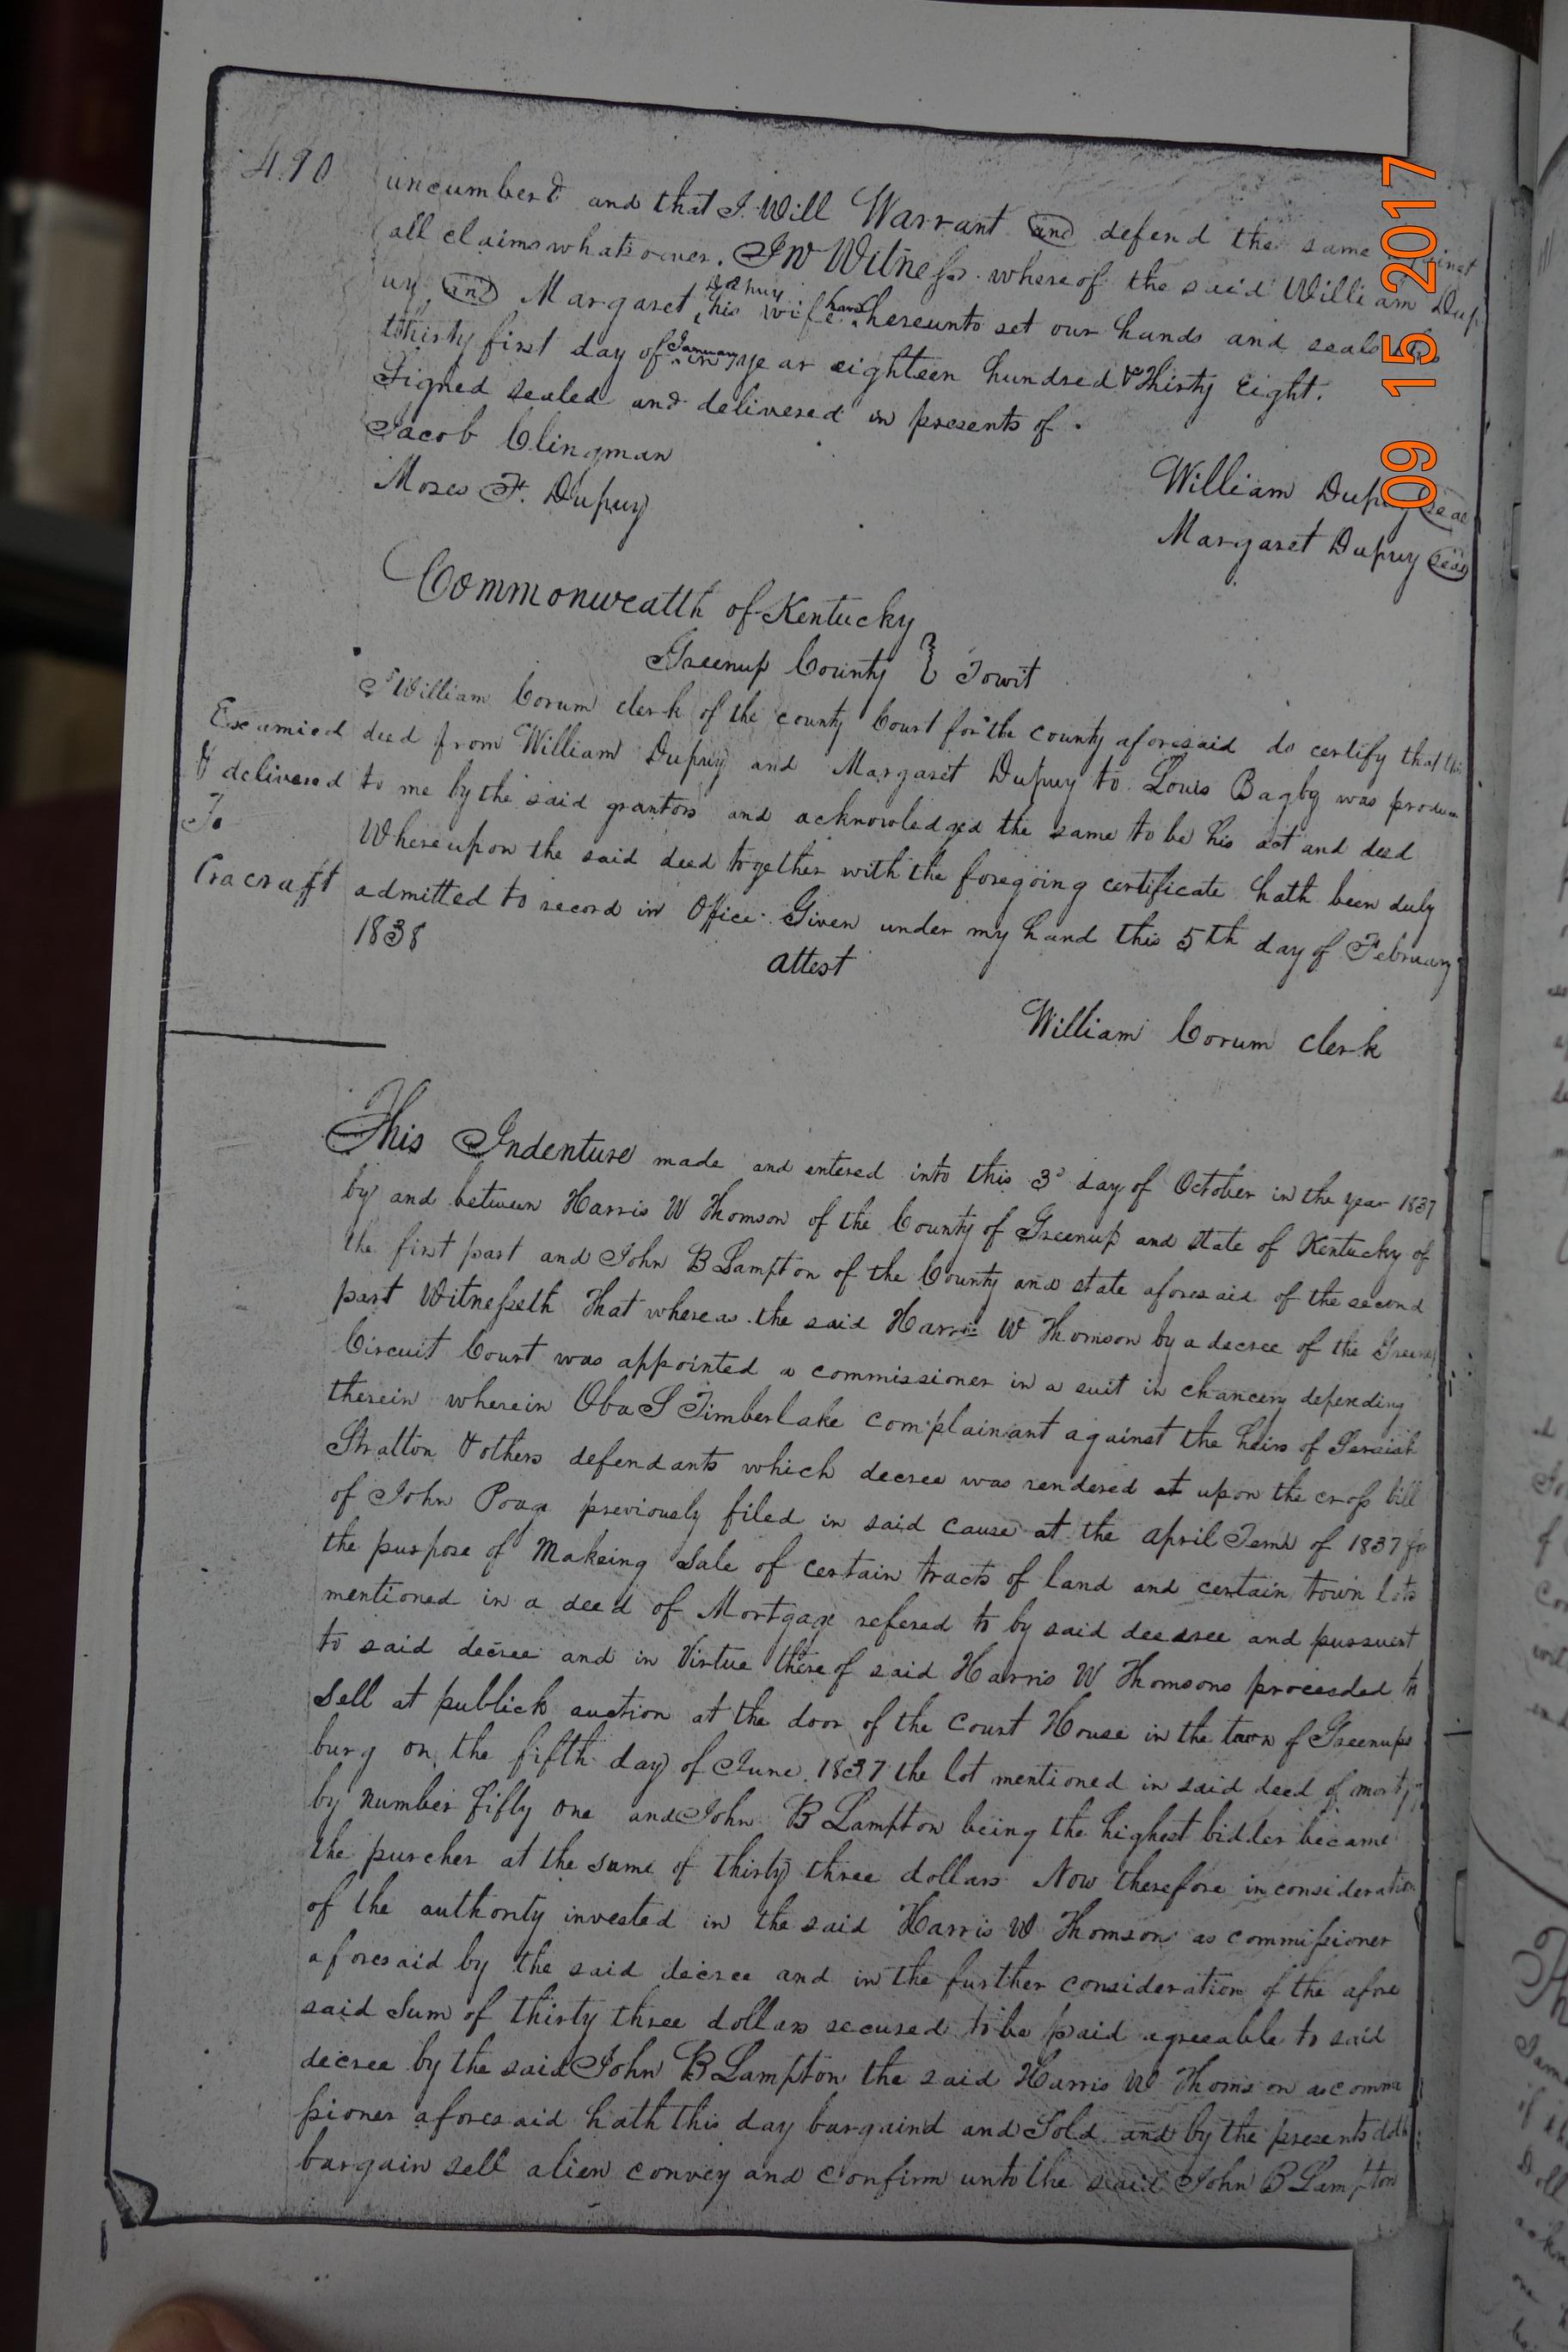 490
uncumberd and that I Will Warrant and defend the same
all claims whatsoever. In Witness whereof the said William Dup
uy and Margaret Dupuy his wife have hereunto set our hands and seals
thirty first day of January in year eighteen hundred & Thirty Eight.
Signed sealed and delivered in presents of.
Jacob Clingman
Moses F. Dupuy
William Dupuy seal
Margaret Dupuy seal
Commonwealth of Kentucky
Greenup County } Towit
I William Corum clerk of the county Court for the county aforesaid do certify that this
deed from William Dupuy and Margaret Dupuy to Louis Bagby was produ
to me by the said grantors and acknowledged the same to be his act and deed
Whereupon the said deed together with the foregoing certificate hath been duly
admitted to record in Office. Given under my hand this 5th day of February
1838
attest
William Corum clerk
Examied
& delivered
To
Cracraft
This Indenture made and entered into this 3d day of October in the year 1837
by and between Harris W Thomson of the County of Greenup and state of Kentucky of
the first part and John B Lampton of the County and state aforesaid of the second
part Witnesseth That whereas the said Harris W Thomson by a decree of the Greenup
Circuit Court was appointed a commissioner in a suit in chancery depending
therein wherein Oba S Timberlake complainant against the heirs of
Stratton & others defendants which decree was rendered at upon the cross bill
of John Poage previously filed in said cause at the april Term of 1837 for
the purpose of Makeing Sale of certain tracts of land and certain town lots
mentioned in a deed of Mortgage refered to by said decree and pursuent
to said decree and in Virtue thereof said Harris W Thomsons proceeded to
Sell at publick auction at the door of the Court House in the town of Greenups
burg on the fifth day of June 1837 the lot mentioned in said deed of mortg
by Number fifty one and John B Lampton being the highest bidder became
the purcher at the sume of thirty three dollars Now therefore in consideration
of the authority invested in the said Harris W Thomson as commissioner
aforesaid by the said decree and in the further consideration of the afore
said Sum of thirty three dollars secured to be paid agreeable to said
decree by the said John B Lampton the said Harris W Thomson as commi
ssioner aforesaid hath this day bargaind and Sold and by the presents doth
bargain sell alien convey and confirm unto the said John B Lampton
09 15 2017